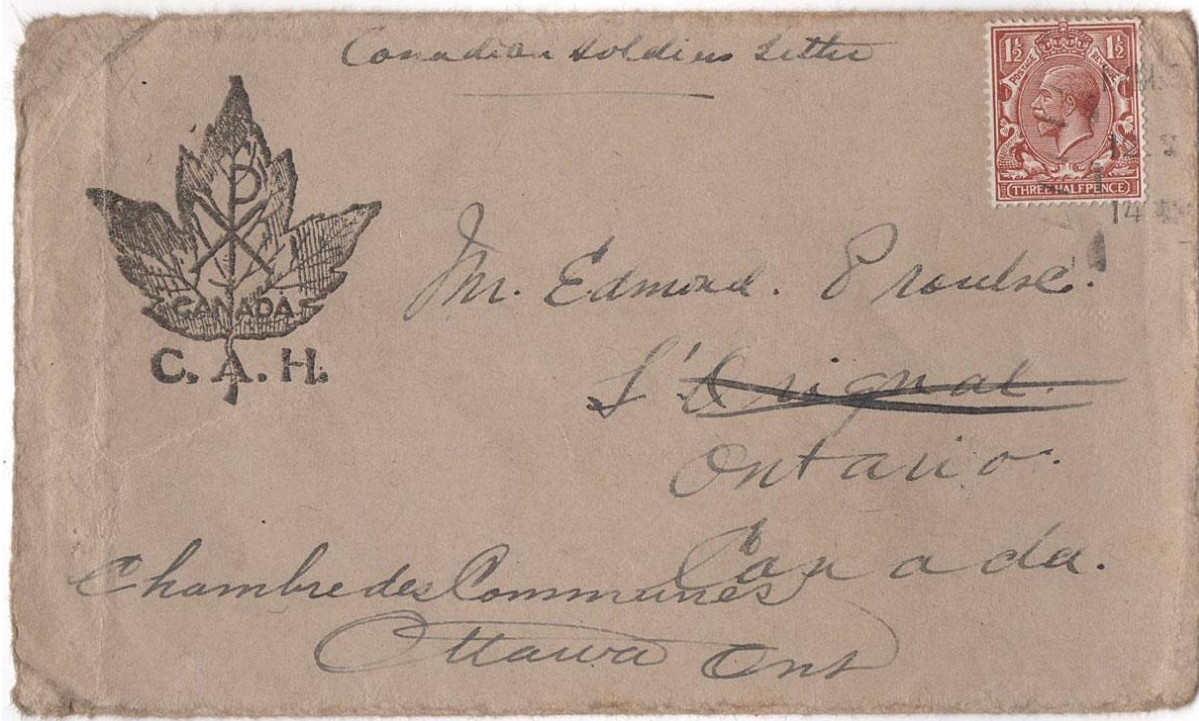 Canadian Soldiers Letter
1½ 1½
POSTAGE REVENUE
THREE HALFPENCE
12
14
CANADA
C. A. H.
Mr. Edmond. Proulx.
L'Orignal.
Ontario.
Canada.
Chambre des Communes
Ottawa Ont